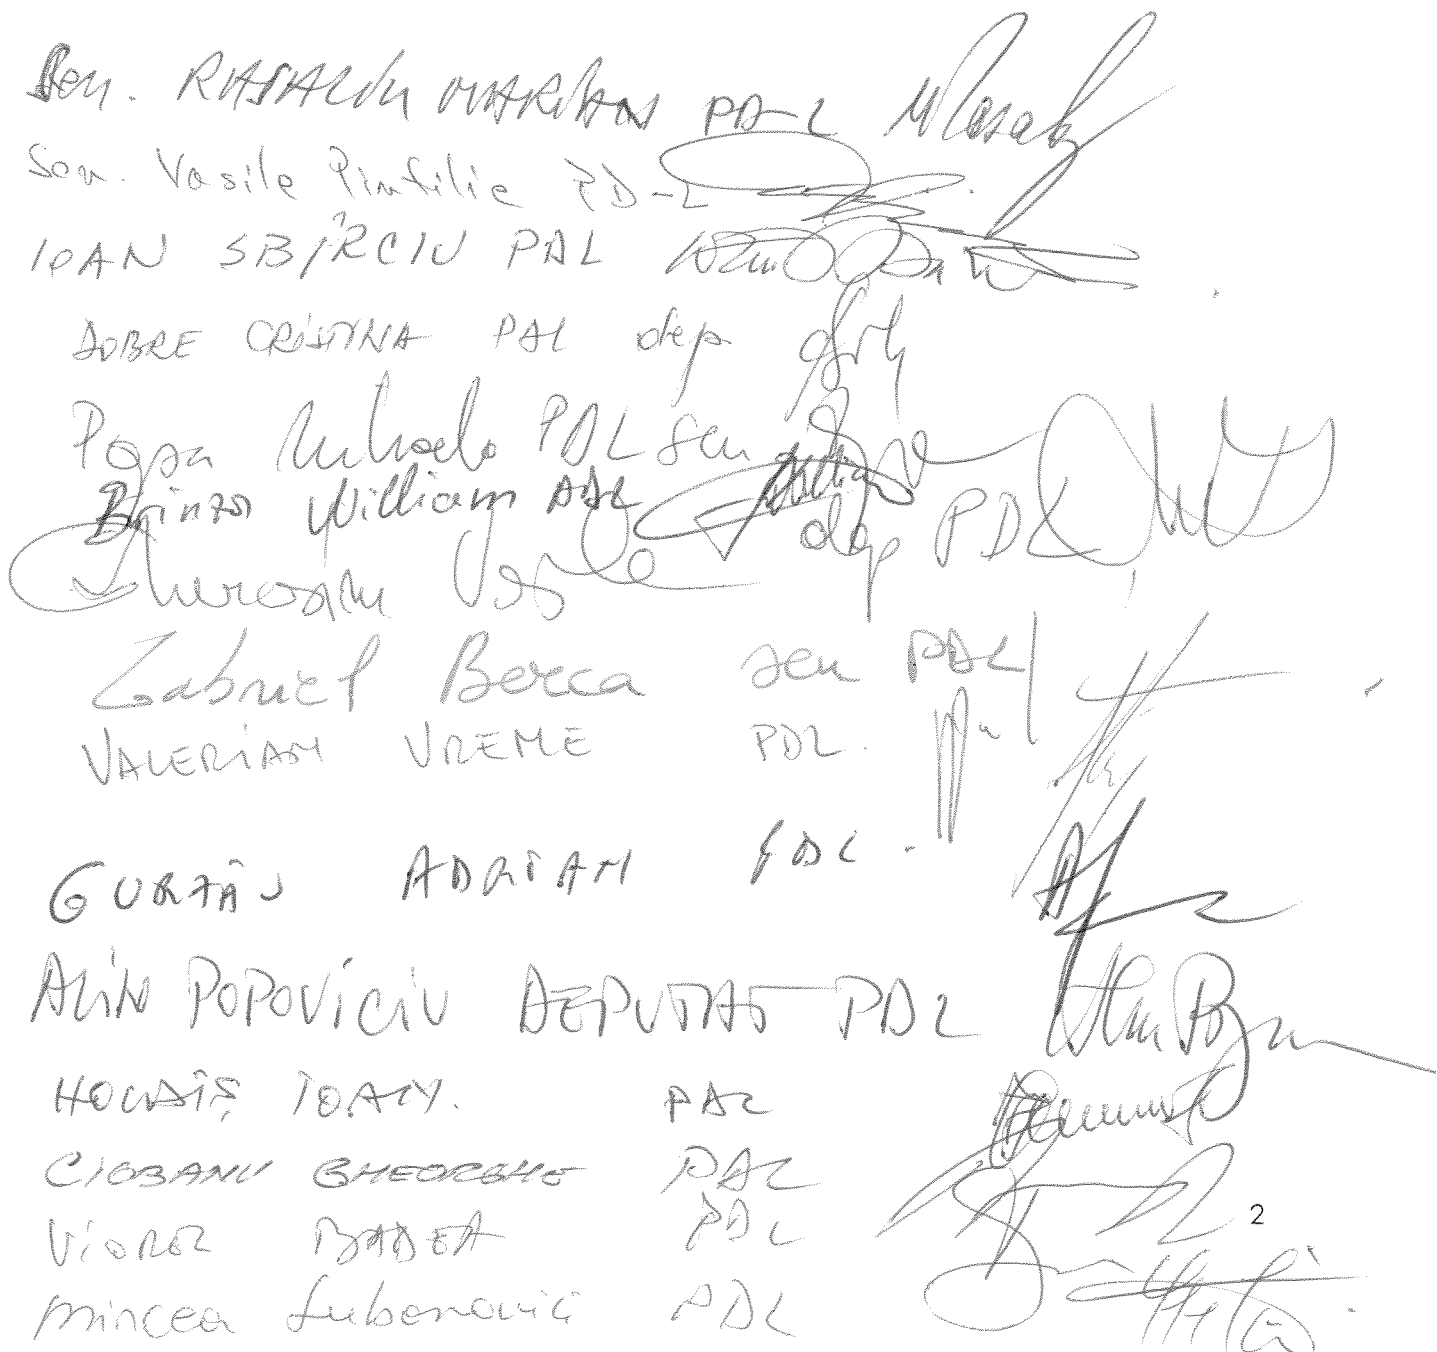 Sen. RASALIU MARIAN PD-L
Sen. Vasile Pintilie PD-L
IOAN SBÎRCIU PDL
DOBRE CRISTINA PDL dep
Popa Mihaela PDL sen
Brinza William PDL
Gherasim Vasile dep PDL
Gabriel Berca sen PDL
VALERIAN VREME PDL.
GURZĂU ADRIAN PDL.
ALIN POPOVICIU DEPUTAT PDL
HOLDIȘ IOAN. PDL
CIOBANU GHEORGHE PDL
VIOREL BADEA PDL
2
Mircea Lubanovici PDL